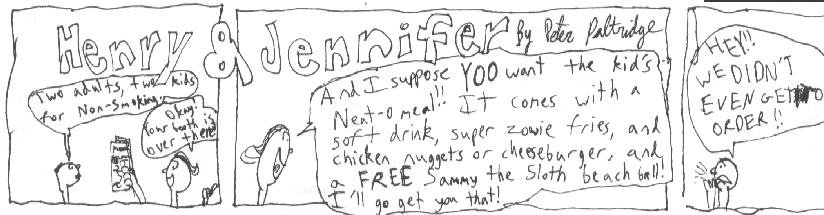 Henry & Jennifer
By Peter Paltridge
Two adults, two kids
for Non-smoking.
Okay!
Your booth is
over there!
And I suppose YOO want the kid's
Neat-O meal!! It comes with a
soft drink, super zowie fries, and
chicken nuggets or cheeseburger, and
a FREE Sammy the Sloth beach ball!
I'll go get you that!
HEY!!
WE DIDN'T
EVEN GET TO
ORDER!!